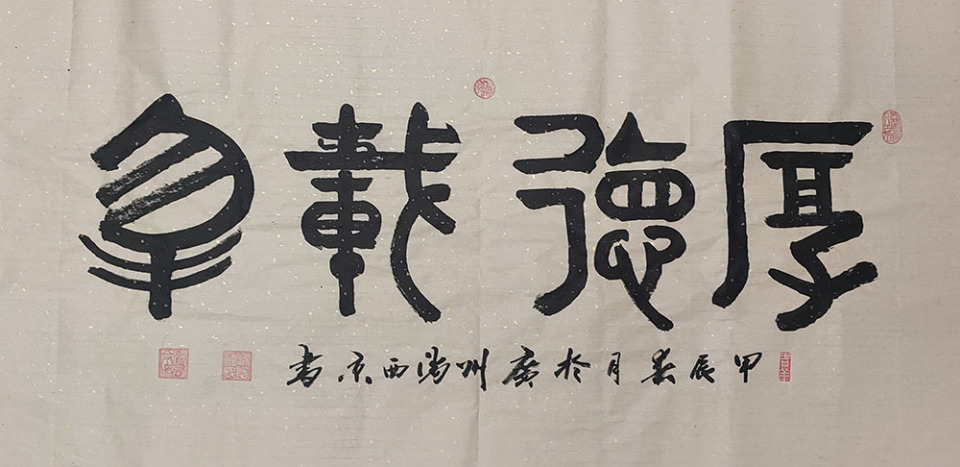 厚德載物
甲辰春月於廣州西京書